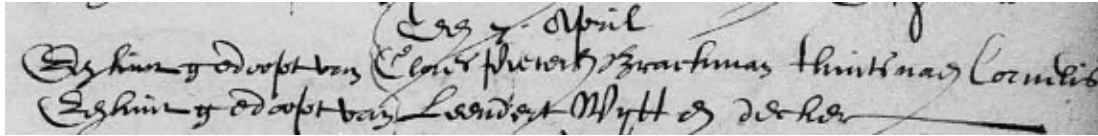 Den 7 April
Een kint gedoopt van Claes Pietersz Brackman tkints naem Cornelis
Een kint gedoopt van Leendert Wytten decker